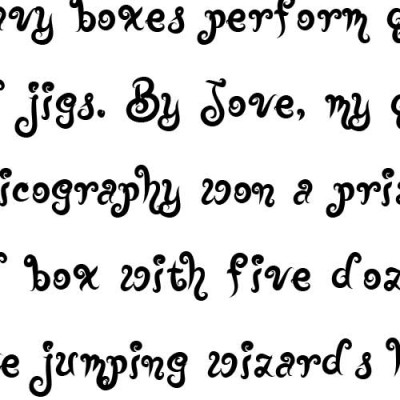 avy boxes perform q
f jigs. By Jove, my q
icography won a priz
f box with five doz
e jumping wizards